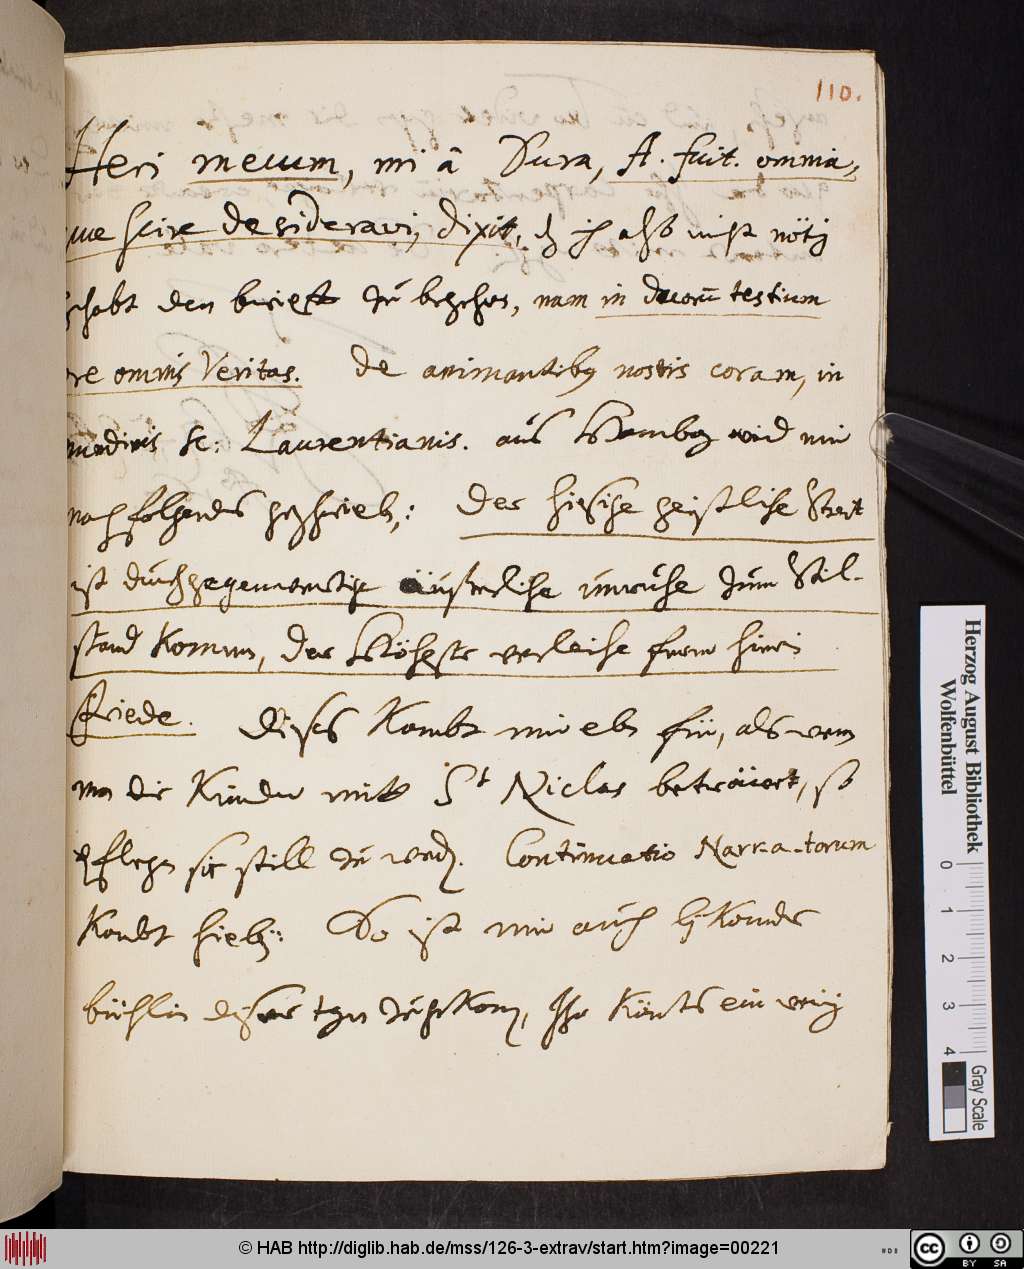 110.
Heri mecum, mi â Dura, A. fuit. omnia,
que scire desideravi, dixit, dz ich also nicht nötig
gehabt den brieff zu begehren, nam in duorū testium
ore omnis Veritas. de animantibus nostis coram, in
nundinis sc: Laurentianis. auß Hamburg wird mir
nachfolgendes geschrieben: Der hiesige geistliche Streit
ist durch gegenwertige äuserliche unruhe zum Stil-
stand Kommen, der Höheste verleihe ferner hierin
friede. dieses Kombt mir eben für, als wenn
man die Kinder mitt St Niclas betröwet, so
pflegen sie still zu werden. Continuatio Narr-a-torum
Kombt hiebey: So ist mir auch bey Kommdes
büchlin dieser tagen zu Kommen, Ihr Könts ein wenig
Herzog August Bibliothek
Wolfenbüttel
0 1 2 3 4
Gray Scale
© HAB http://diglib.hab.de/mss/126-3-extrav/start.htm?image=00221
cc BY SA